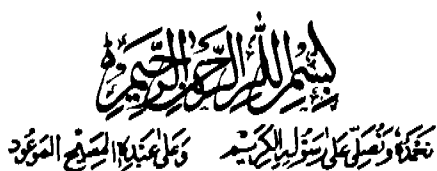 بِسْمِ اللّٰهِ الرَّحْمٰنِ الرَّحِيْمِ
نَحْمَدُهٗ وَنُصَلِّيْ عَلٰى رَسُوْلِهِ الْكَرِيْمِ وَعَلٰى عَبْدِهِ الْمَسِيْحِ الْمَوْعُوْد